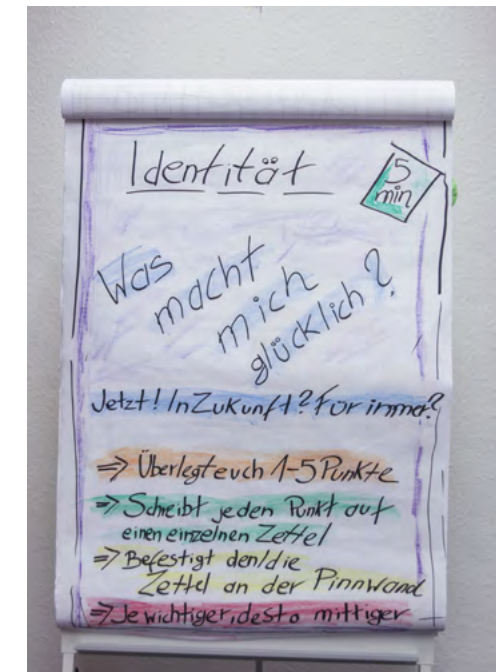 Identität
5
min
Was
macht
mich
glücklich?
Jetzt! In Zukunft? Für immer?
=> Überlegt euch 1-5 Punkte
=> Schreibt jeden Punkt auf
einen einzelnen Zettel
=> Befestigt den/die
Zettel an der Pinnwand
=> Je wichtiger, desto mittiger